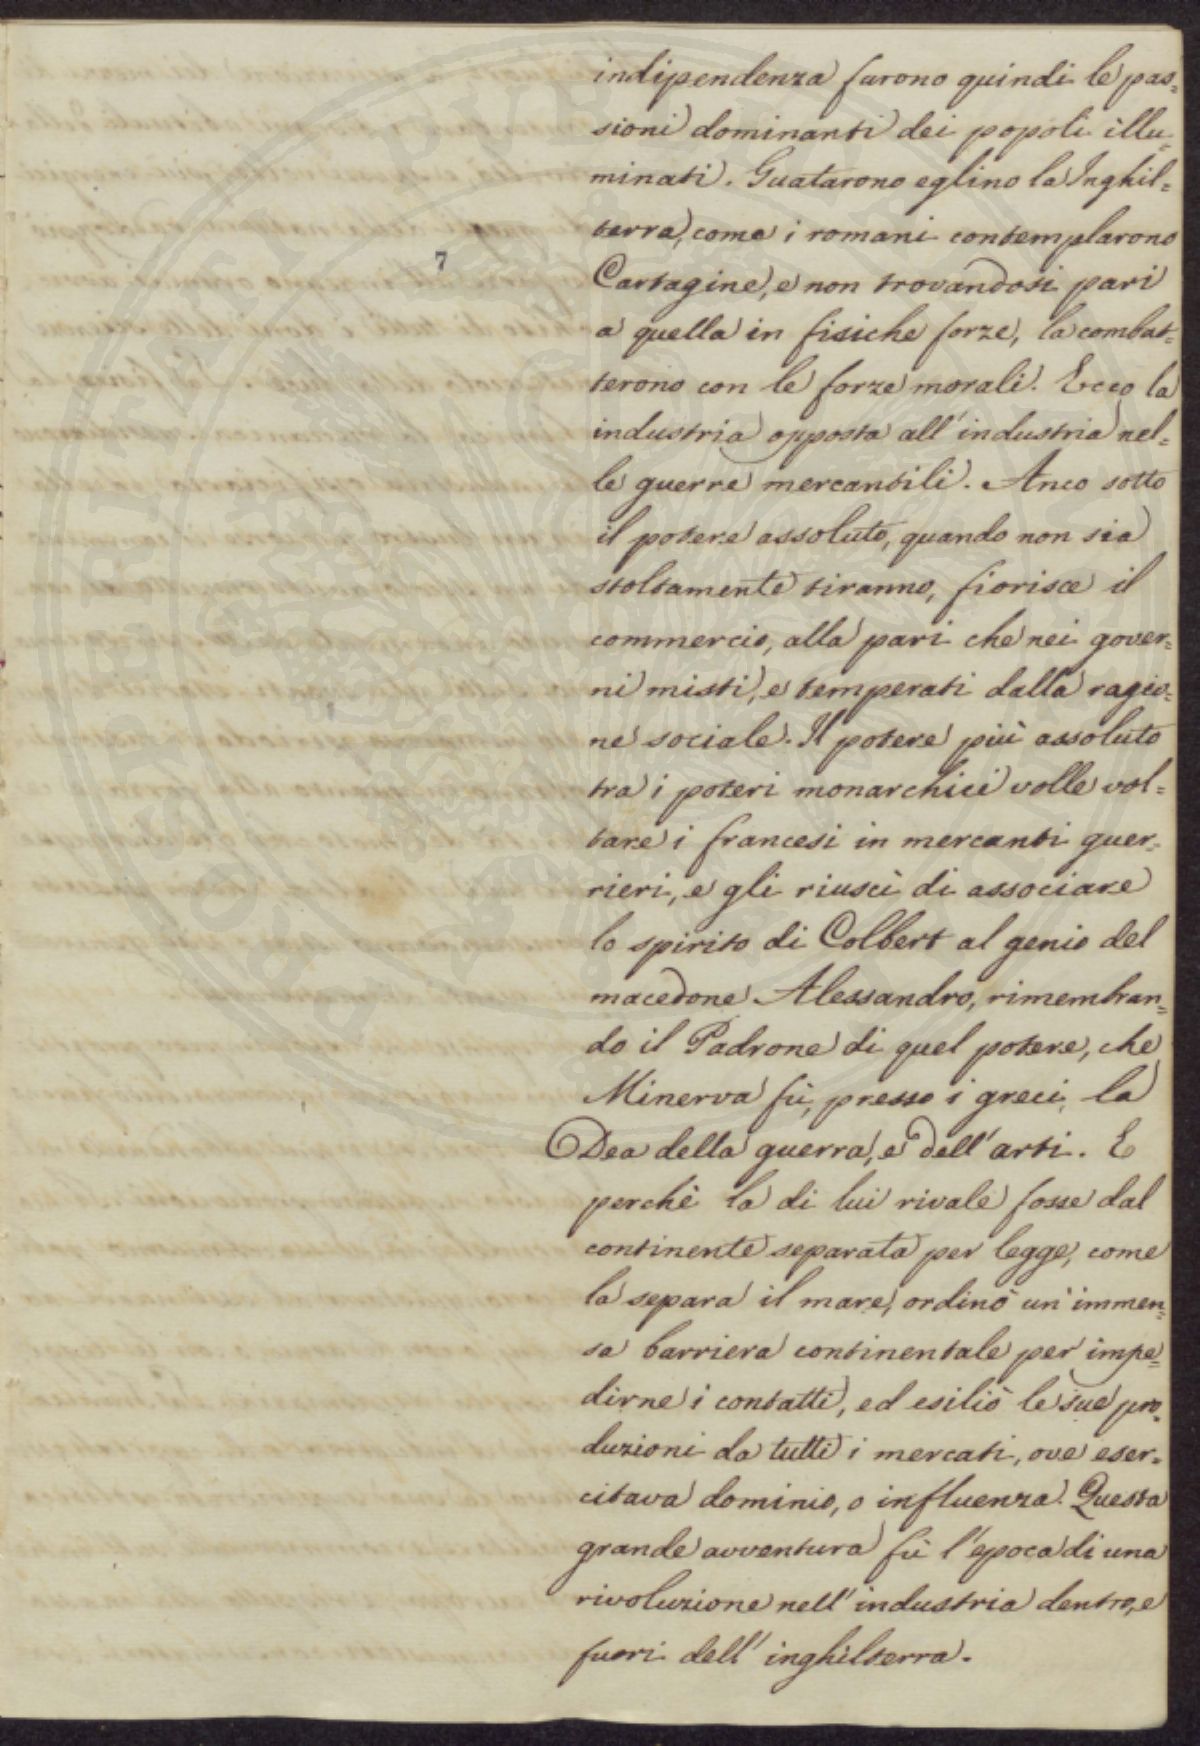 indipendenza furono quindi le pas=
sioni dominanti dei popoli illu=
minati. Guatarono eglino la Inghil=
terra, come i romani contemplarono
7
Cartagine, e non trovandosi pari
a quella in fisiche forze, la combat=
terono con le forze morali. Ecco la
industria opposta all'industria nel=
le guerre mercantili. Anco sotto
il potere assoluto, quando non sia
stoltamente tiranno, fiorisce il
commercio, alla pari che nei gover=
ni misti, e temperati dalla ragio=
ne sociale. Il potere più assoluto
tra i poteri monarchici volle vol=
tare i francesi in mercanti guer=
rieri, e gli riuscì di associare
lo spirito di Colbert al genio del
macedone Alessandro, rimembran=
do il Padrone di quel potere, che
Minerva fù, presso i greci, la
Dea della guerra, e dell'arti. E
perchè la di lui rivale fosse dal
continente separata per legge, come
la separa il mare, ordinò un'immen=
sa barriera continentale per impe=
dirne i contatti, ed esiliò le sue pro=
duzioni da tutti i mercati, ove eser=
citava dominio, o influenza. Questa
grande avventura fù l'epoca di una
rivoluzione nell'industria dentro, e
fuori dell'inghilterra.